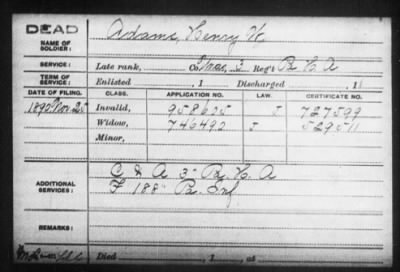 DEAD
NAME OF SOLDIER: Adams, Henry W.
SERVICE: Late rank, Co. 3 Reg't Pa H A
TERM OF SERVICE: Enlisted , 1 Discharged , 1
DATE OF FILING. CLASS. APPLICATION NO. LAW. CERTIFICATE NO.
1890 Nov. 25 Invalid, 958625 J 727599
Widow, 746492 J 529511
Minor,
ADDITIONAL SERVICES: C & A 3" Pa H A
F 188" Pa Inf
REMARKS:
Died , 1 , at